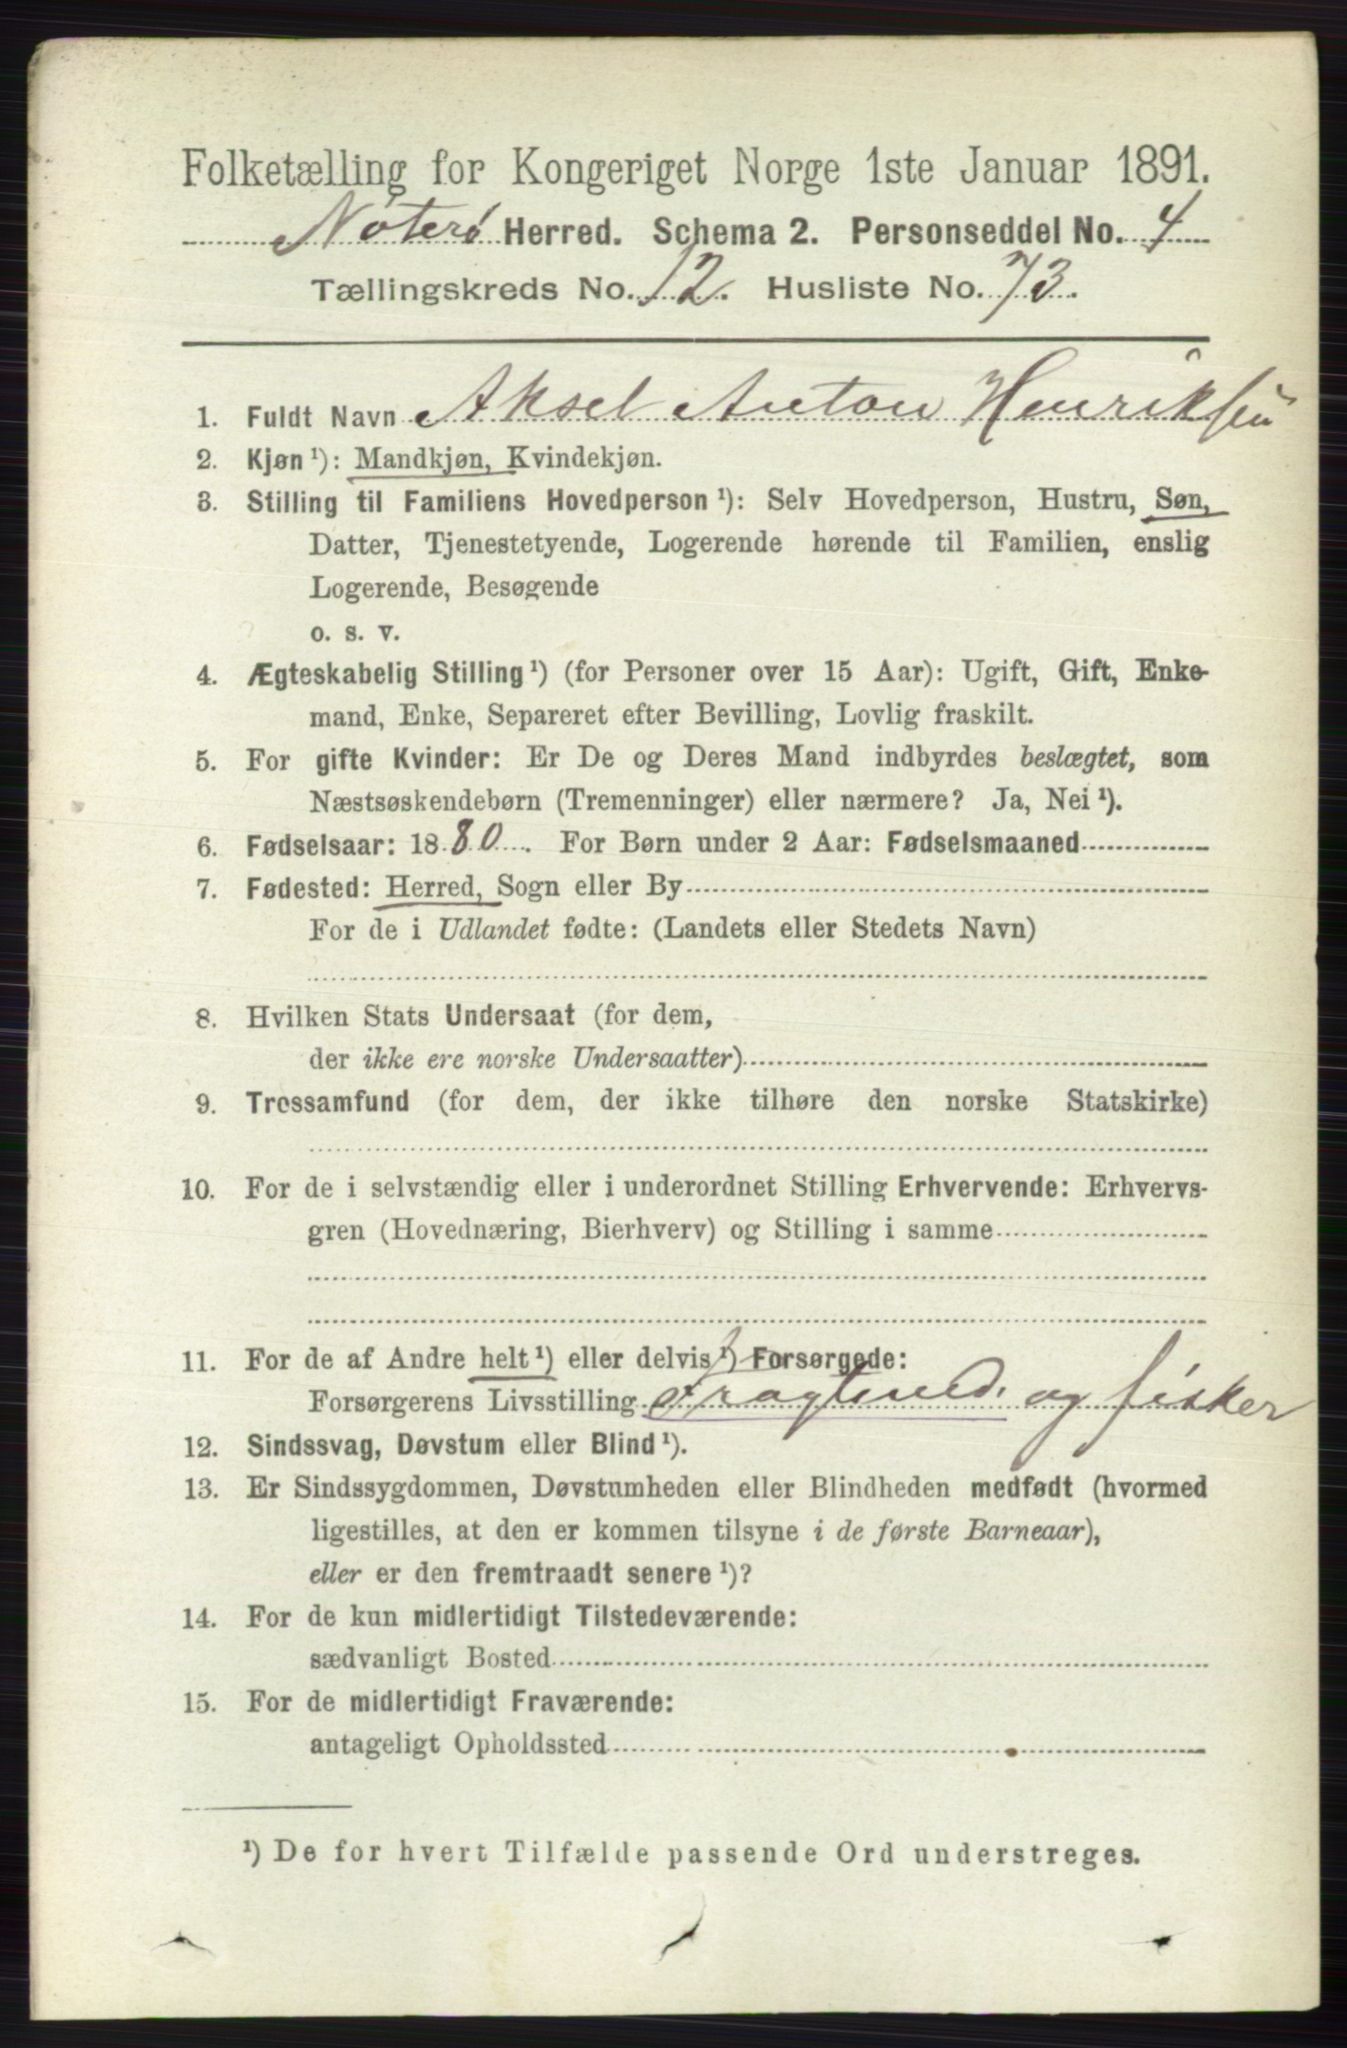 Folketælling for Kongeriget Norge 1ste Januar 1891.
Nøterø Herred. Schema 2. Personseddel No. 4
Tællingskreds No. 12. Husliste No. 73.
1. Fuldt Navn Aksel Anton Henriksen
2. Kjøn ¹): Mandkjøn, Kvindekjøn.
3. Stilling til Familiens Hovedperson ¹): Selv Hovedperson, Hustru, Søn,
Datter, Tjenestetyende, Logerende hørende til Familien, enslig
Logerende, Besøgende
o. s. v.
4. Ægteskabelig Stilling ¹) (for Personer over 15 Aar): Ugift, Gift, Enke-
mand, Enke, Separeret efter Bevilling, Lovlig fraskilt.
5. For gifte Kvinder: Er De og Deres Mand indbyrdes beslægtet, som
Næstsøskendebørn (Tremenninger) eller nærmere? Ja, Nei ¹).
6. Fødselsaar: 1880. For Børn under 2 Aar: Fødselsmaaned
7. Fødested: Herred, Sogn eller By
For de i Udlandet fødte: (Landets eller Stedets Navn)
8. Hvilken Stats Undersaat (for dem,
der ikke ere norske Undersaatter)
9. Trossamfund (for dem, der ikke tilhøre den norske Statskirke)
10. For de i selvstændig eller i underordnet Stilling Erhvervende: Erhvervs-
gren (Hovednæring, Bierhverv) og Stilling i samme
11. For de af Andre helt ¹) eller delvis ¹) Forsørgede:
Forsørgerens Livsstilling Fragtmd. og fisker
12. Sindssvag, Døvstum eller Blind ¹).
13. Er Sindssygdommen, Døvstumheden eller Blindheden medfødt (hvormed
ligestilles, at den er kommen tilsyne i de første Barneaar),
eller er den fremtraadt senere ¹)?
14. For de kun midlertidigt Tilstedeværende:
sædvanligt Bosted
15. For de midlertidigt Fraværende:
antageligt Opholdssted
¹) De for hvert Tilfælde passende Ord understreges.